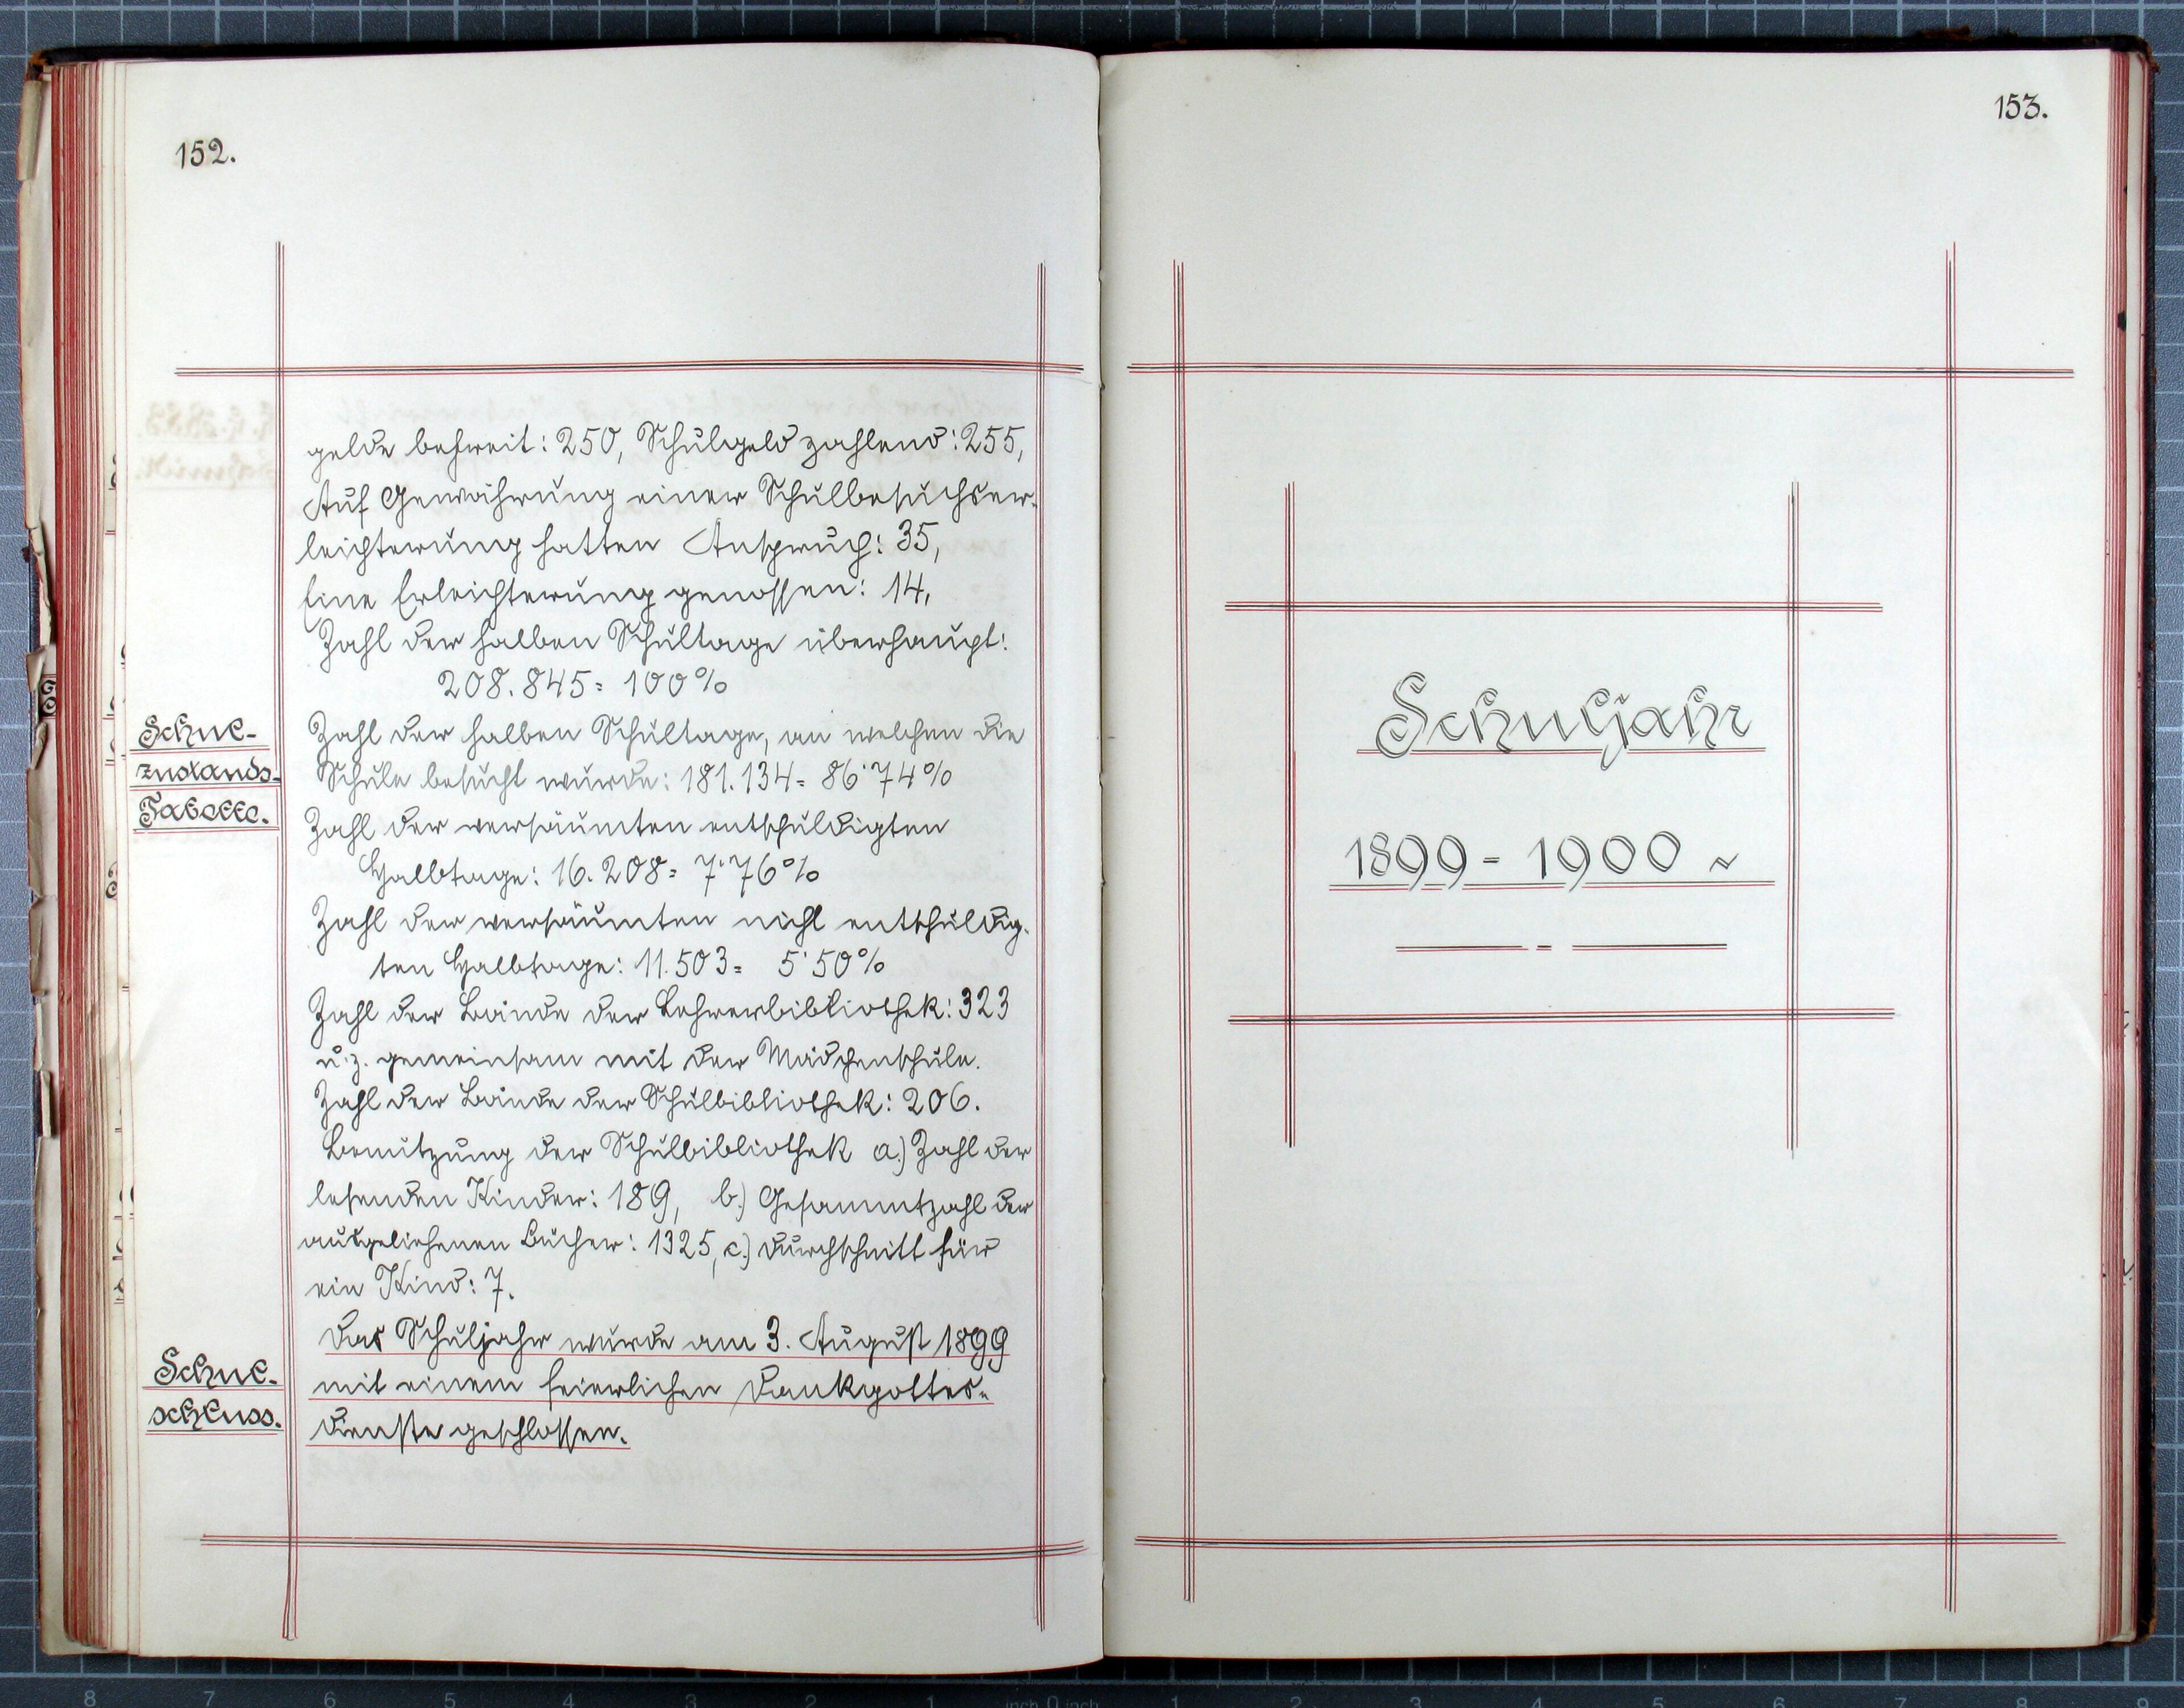 152.
gelde befreit: 250, Schulgeld zahlend: 255,
Auf Gewährung einer Schulbesuchser-
leichterung hatten Anspruch: 35,
Eine Erleichterung genossen: 14,
Zahl der halben Schultage überhaupt:
208.845 = 100%
Schul-
zustands-
Tabelle.
Zahl der halben Schultage, an welchen die
Schule besucht wurde: 181.134 = 86·74%
Zahl der versäumten entschuldigten
Halbtage: 16.208 = 7·76%
Zahl der versäumten nicht entschuldig-
ten Halbtage: 11.503 = 5·50%
Zahl der Bände der Lehrerbibliothek: 323
u. z. gemeinsam mit der Mädchenschule.
Zahl der Bände der Schulbibliothek: 206.
Benützung der Schulbibliothek a.) Zahl der
lesenden Kinder: 189, b.) Gesammtzahl der
ausgeliehenen Bücher: 1325, c.) Durchschnitt für
ein Kind: 7.
Schul-
schluss.
Das Schuljahr wurde am 3. August 1899
mit einem feierlichen Dankgottes-
dienste geschlossen.
153.
Schuljahr
1899 - 1900 ~